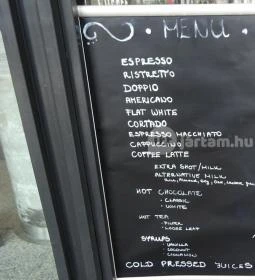 MENU
ESPRESSO
RISTRETTO
DOPPIO
AMERICANO
FLAT WHITE
CORTADO
ESPRESSO MACCHIATO
CAPPUCCINO
COFFEE LATTE
EXTRA SHOT/MILK
ALTERNATIVE MILK
HOT CHOCOLATE
- CLASSIC
- WHITE
HOT TEA
- FILTER
- LOOSE LEAF
SYRUPS
- VANILLA
- COCONUT
- CINNAMON
COLD PRESSED JUICES
jartam.hu